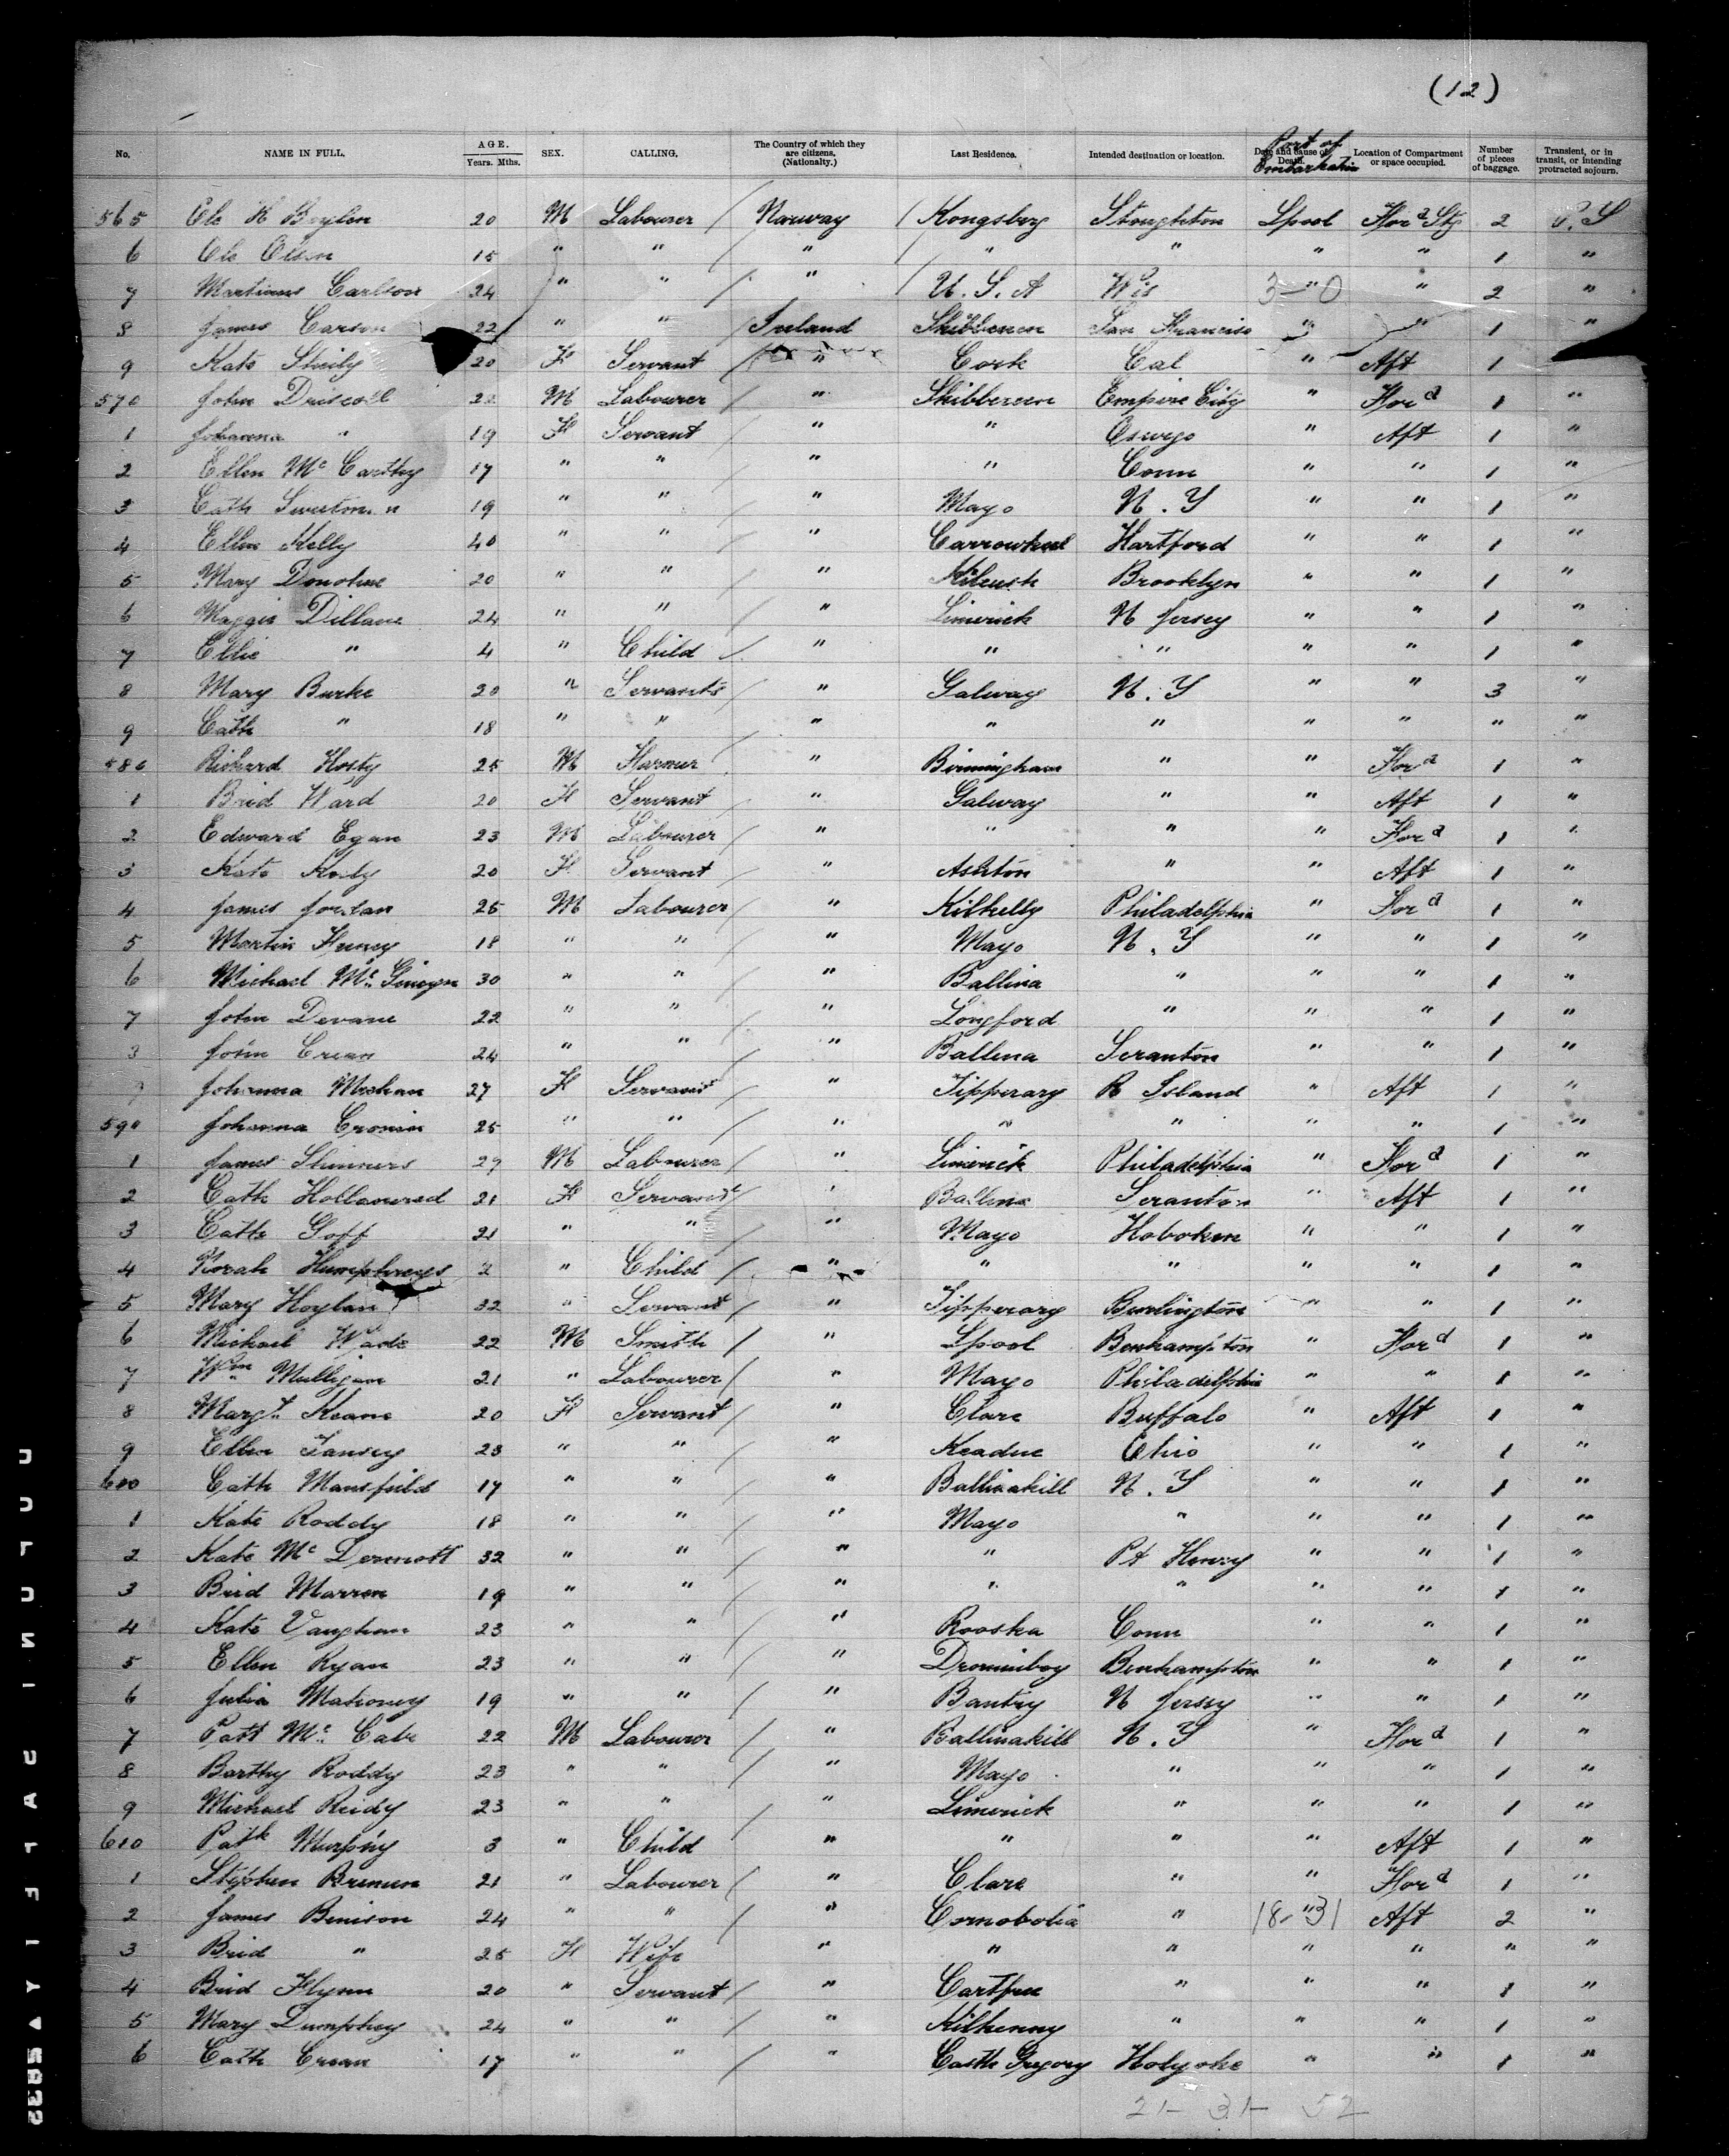 (12)
No. NAME IN FULL. AGE. Years. Mths. SEX. CALLING. The Country of which they are citizens. (Nationalty.) Last Residence. Intended destination or location. Date and Cause of Death. Port of Embarkation Location of Compartment or space occupied. Number of pieces of baggage. Transient, or in transit, or intending protracted sojourn.
565 Ole 20 M Labourer / Norway / Kongsberg Stoughton Lpool For'd Stg 2 S
6 Ole Olsen 15 " " / " / " " " " 1 "
7 Martinus Carlson 24 " " / " / U.S.A Wis 3-0 " 2 "
8 James Carson 22 " " Ireland Skibbereen San Francisco " " 1 "
9 Kate 20 F Servant / " Cork Cal " Aft 1
570 John Driscoll M Labourer / " Skibbereen Empire City " For'd 1 "
1 Johanna " 19 F Servant / " " Oswego " Aft 1 "
2 Ellen Mc Carthy 17 " " / " " Conn " " 1 "
3 Cath 19 " " / " Mayo N.Y " " 1 "
4 Ellen Kelly 40 " " / " Carrowkeel Hartford " " 1 "
5 Mary Donohue 20 " " / " Kilrush Brooklyn " " 1 "
6 Maggie Dillane 24 " " / " Limerick N Jersey " " 1 "
7 Ellie " 4 " Child / " " " " " 1 "
8 Mary Burke 20 " Servants / " Galway N.Y " " 3 "
9 Cath " 18 " " / " " " " " " "
580 Richard Hosty 25 M Farmer / " Birmingham " " For'd 1 "
1 Brid Ward 20 F Servant / " Galway " " Aft 1 "
2 Edward Egan 23 M Labourer / " " " " For'd 1 "
3 Kate 20 F Servant / " Ashton " " Aft 1 "
4 James Jordan 25 M Labourer / " Kilkelly Philadelphia " For'd 1 "
5 Martin 18 " " / " Mayo N.Y " " 1 "
6 Michael 30 " " / " Ballina " " " 1 "
7 John Devane 22 " " / " Longford " " " 1 "
8 John Crean 24 " " / " Ballina Scranton " " 1 "
9 Johanna Meehan 27 F Servant / " Tipperary R Island " Aft 1 "
590 Johanna Cronin 25 " " / " " " " " 1 "
1 James Skinners 29 M Labourer / " Limerick Philadelphia " For'd 1 "
2 Cath 21 F Servant / " Ballina Scranton " Aft 1 "
3 Cath Goff 21 " " / " Mayo Hoboken " " 1 "
4 Norah Humphreys 2 " Child / " " " " " 1 "
5 Mary Hoylan 32 " Servant / " Tipperary Burlington " " 1 "
6 Michael Wade 22 M Smith / " Lpool Benhampton " For'd 1 "
7 Wm Mulligan 21 " Labourer / " Mayo Philadelphia " " 1 "
8 Margt Keane 20 F Servant / " Clare Buffalo " Aft 1 "
9 Ellen Tansey 23 " " / " Keadue Ohio " " 1 "
600 Cath Mansfield 17 " " / " Ballinakill N.Y " " 1 "
1 Kate Roddy 18 " " / " Mayo " " " 1 "
2 Kate Mc Dermott 32 " " / " " Pt Henry " " 1 "
3 Brid Marren 19 " " / " " " " " 1 "
4 Kate Vaughan 23 " " / " Rooska Conn " " 1 "
5 Ellen Ryan 23 " " / " Drominboy Benhampton " " 1 "
6 Julia Mahoney 19 " " / " Bantry N Jersey " " 1 "
7 Patt Mc Cabe 22 M Labourer / " Ballinakill N.Y " For'd 1 "
8 Barthy Roddy 23 " " / " Mayo " " " 1 "
9 Michael Reidy 23 " " / " Limerick " " " 1 "
610 Patk Murphy 3 " Child / " " " " Aft 1 "
1 Stephen Brennan 21 " Labourer / " Clare " " For'd 1 "
2 James Benison 24 " " / " " 18-31 Aft 2 "
3 Brid " 25 F Wife " " " " " " "
4 Brid Flynn 20 " Servant / " " " " 1 "
5 Mary Dumphey 24 " " / " Kilkenny " " " 1 "
6 Cath Crean 17 " " / " Castle Gregory Holyoke " " 1 "
21- 31- 52